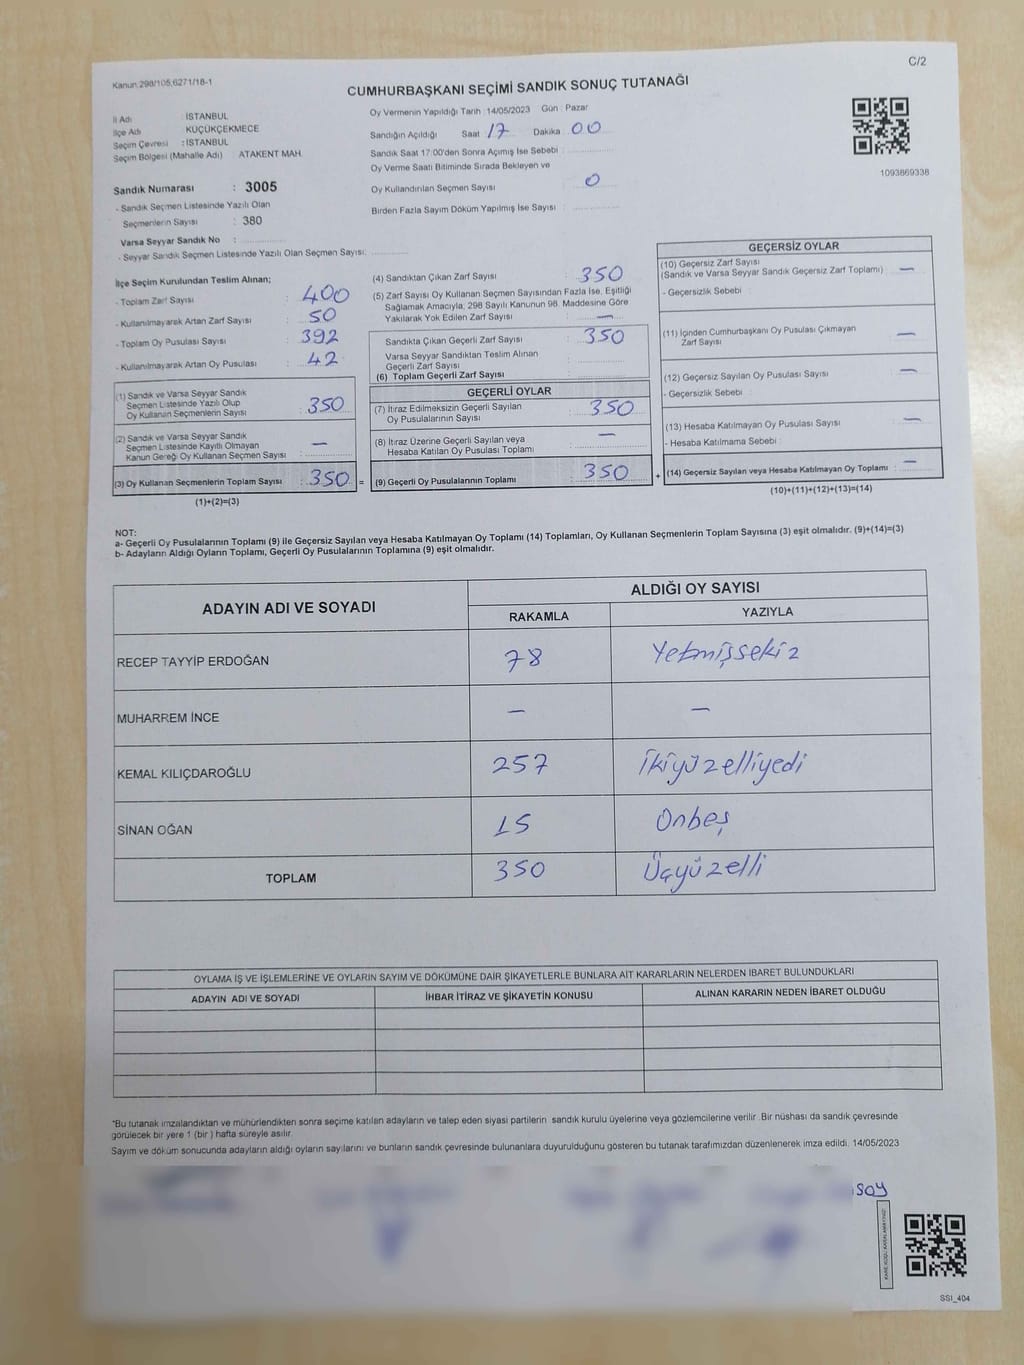 C/2
Kanun:298/105,6271/18-1
CUMHURBAŞKANI SEÇİMİ SANDIK SONUÇ TUTANAĞI
İl Adı : İSTANBUL
İlçe Adı KÜÇÜKÇEKMECE
Seçim Çevresi : İSTANBUL
Seçim Bölgesi (Mahalle Adı) ATAKENT MAH.
Oy Vermenin Yapıldığı Tarih : 14/05/2023 Gün : Pazar
Sandığın Açıldığı Saat 17 Dakika 00
Sandık Saat 17:00'den Sonra Açımış İse Sebebi :
Oy Verme Saati Bitiminde Sırada Bekleyen ve
Oy Kullandırılan Seçmen Sayısı 0
Birden Fazla Sayım Döküm Yapılmış İse Sayısı :
1093869338
Sandık Numarası : 3005
- Sandık Seçmen Listesinde Yazılı Olan
Seçmenlerin Sayısı : 380
Varsa Seyyar Sandık No :
- Seyyar Sandık Seçmen Listesinde Yazılı Olan Seçmen Sayısı:
İlçe Seçim Kurulundan Teslim Alınan;
- Toplam Zarf Sayısı : 400
- Kullanılmayarak Artan Zarf Sayısı : 50
- Toplam Oy Pusulası Sayısı : 392
- Kullanılmayarak Artan Oy Pusulası : 42
(1) Sandık ve Varsa Seyyar Sandık
Seçmen Listesinde Yazılı Olup
Oy Kullanan Seçmenlerin Sayısı : 350
(2) Sandık ve Varsa Seyyar Sandık
Seçmen Listesinde Kayıtlı Olmayan
Kanun Gereği Oy Kullanan Seçmen Sayısı : —
(3) Oy Kullanan Seçmenlerin Toplam Sayısı : 350 =
(1)+(2)=(3)
(4) Sandıktan Çıkan Zarf Sayısı : 350
(5) Zarf Sayısı Oy Kullanan Seçmen Sayısından Fazla İse, Eşitliği
Sağlamak Amacıyla, 298 Sayılı Kanunun 98. Maddesine Göre
Yakılarak Yok Edilen Zarf Sayısı : —
Sandıkta Çıkan Geçerli Zarf Sayısı : 350
Varsa Seyyar Sandıktan Teslim Alınan
Geçerli Zarf Sayısı :
(6) Toplam Geçerli Zarf Sayısı
GEÇERLİ OYLAR
(7) İtiraz Edilmeksizin Geçerli Sayılan
Oy Pusulalarının Sayısı : 350
(8) İtiraz Üzerine Geçerli Sayılan veya
Hesaba Katılan Oy Pusulası Toplamı : —
(9) Geçerli Oy Pusulalarının Toplamı : 350 +
GEÇERSİZ OYLAR
(10) Geçersiz Zarf Sayısı
(Sandık ve Varsa Seyyar Sandık Geçersiz Zarf Toplamı) : —
- Geçersizlik Sebebi :
(11) İçinden Cumhurbaşkanı Oy Pusulası Çıkmayan
Zarf Sayısı : —
(12) Geçersiz Sayılan Oy Pusulası Sayısı : —
- Geçersizlik Sebebi :
(13) Hesaba Katılmayan Oy Pusulası Sayısı : —
- Hesaba Katılmama Sebebi :
(14) Geçersiz Sayılan veya Hesaba Katılmayan Oy Toplamı : —
(10)+(11)+(12)+(13)=(14)
NOT:
a- Geçerli Oy Pusulalarının Toplamı (9) ile Geçersiz Sayılan veya Hesaba Katılmayan Oy Toplamı (14) Toplamları, Oy Kullanan Seçmenlerin Toplam Sayısına (3) eşit olmalıdır. (9)+(14)=(3)
b- Adayların Aldığı Oyların Toplamı, Geçerli Oy Pusulalarının Toplamına (9) eşit olmalıdır.
ADAYIN ADI VE SOYADI ALDIĞI OY SAYISI
RAKAMLA YAZIYLA
RECEP TAYYİP ERDOĞAN 78 Yetmişsekiz
MUHARREM İNCE — —
KEMAL KILIÇDAROĞLU 257 İkiyüzelliyedi
SİNAN OĞAN 15 Onbeş
TOPLAM 350 Üçyüzelli
OYLAMA İŞ VE İŞLEMLERİNE VE OYLARIN SAYIM VE DÖKÜMÜNE DAİR ŞİKAYETLERLE BUNLARA AİT KARARLARIN NELERDEN İBARET BULUNDUKLARI
ADAYIN ADI VE SOYADI İHBAR İTİRAZ VE ŞİKAYETİN KONUSU ALINAN KARARIN NEDEN İBARET OLDUĞU
*Bu tutanak imzalandıktan ve mühürlendikten sonra seçime katılan adayların ve talep eden siyasi partilerin sandık kurulu üyelerine veya gözlemcilerine verilir .Bir nüshası da sandık çevresinde
görülecek bir yere 1 (bir ) hafta süreyle asılır.
Sayım ve döküm sonucunda adayların aldığı oyların sayılarını ve bunların sandık çevresinde bulunanlara duyurulduğunu gösteren bu tutanak tarafımızdan düzenlenerek imza edildi. 14/05/2023
SOY
SSI_404